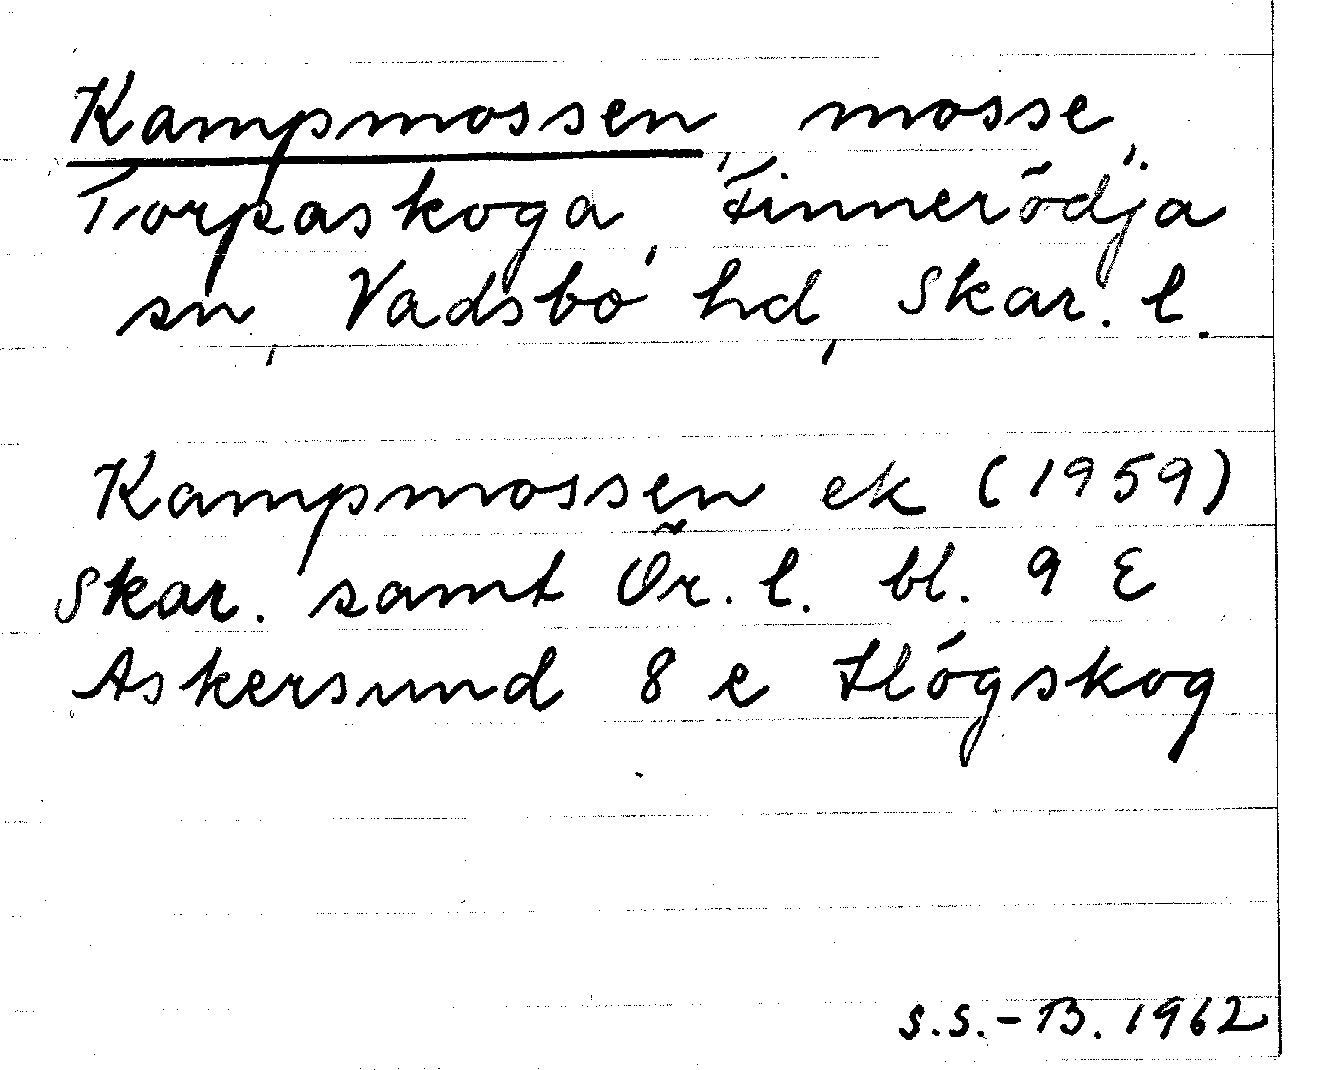 Kampmossen, mosse,
Torpaskoga, Finnerödja
sn, Vadsbo hd, Skar. l.
Kampmossen ek (1959)
Skar. samt Ör. l. bl. 9 E
Askersund 8 e Högskog
S.S.-B. 1962